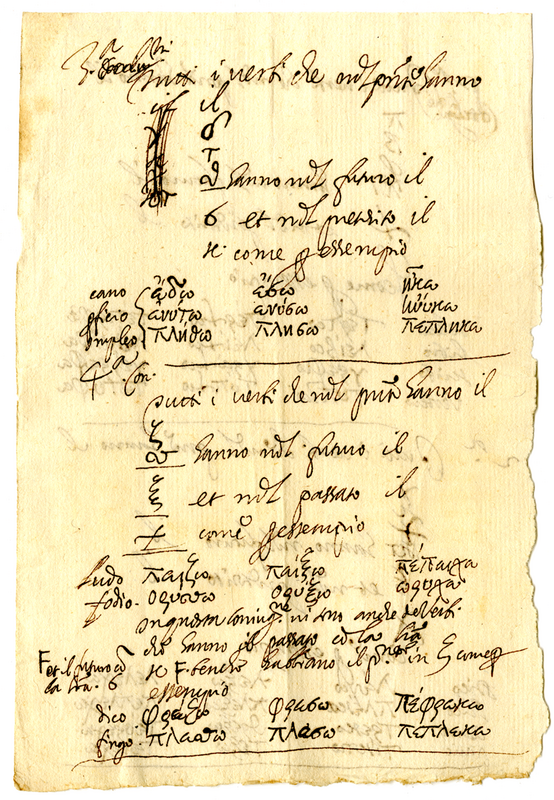 3.ª
Tutti i verbi che nel pnte hanno
il
δ
τ
θ hanno nel futuro il
σ et nel preterito il
κ come p essempio
cano ᾄδω ᾄσω ἦκα
pficio ἀνύτω ἀνύσω ἤνυκα
impleo πλήθω πλησω πεπληκα
4.ª Con.
Tutti i verbi che nel pnte hanno il
ζ
hanno nel futuro il
ξ et nel passato il
χ come p essempio
Ludo παιζω παίξω πέπαιχα
fodio ορύξω
In questa coniug.ne vi sono anche de verbi
che hanno il passato cō la
F et il futuro cō κ F benche habbiano il in ζ come p
la σ essempio
dico φραζω φρασω πέφρακα
fingo πλαθω πλάσω πεπλακα